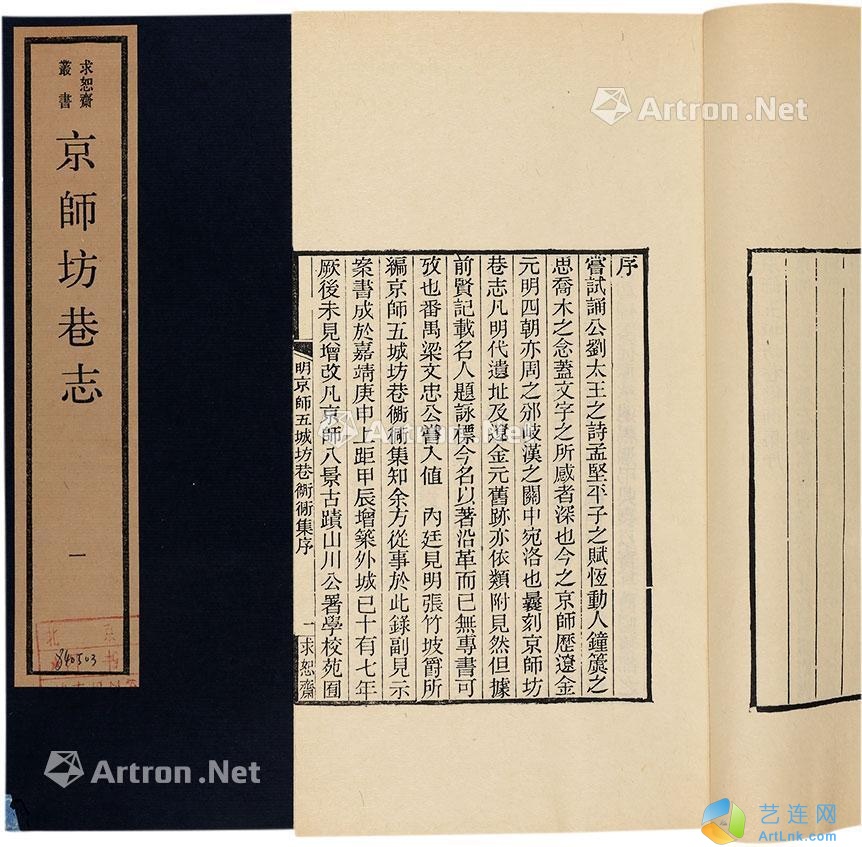 求恕齋
叢書
京師坊巷志
一
北京
840503
序
嘗試誦公劉太王之詩孟堅平子之賦恆動人鐘簴之
思喬木之念蓋文字之所感者深也今之京師歷遼金
元明四朝亦周之邠岐漢之關中宛洛也曩刻京師坊
巷志凡明代遺址及遼金元舊跡亦依類附見然但據
前賢記載名人題詠標今名以著沿革而已無專書可
攷也番禺梁文忠公嘗入值 內廷見明張竹坡爵所
編京師五城坊巷衚衕集知余方從事於此錄副見示
案書成於嘉靖庚申上距甲辰增築外城已十有七年
厥後未見增改凡京師八景古蹟山川公署學校苑囿
明京師五城坊巷衚衕集序
一
求恕齋
Artron.Net
Artron.Net
Artron.Net
艺连网
ArtLnk.com